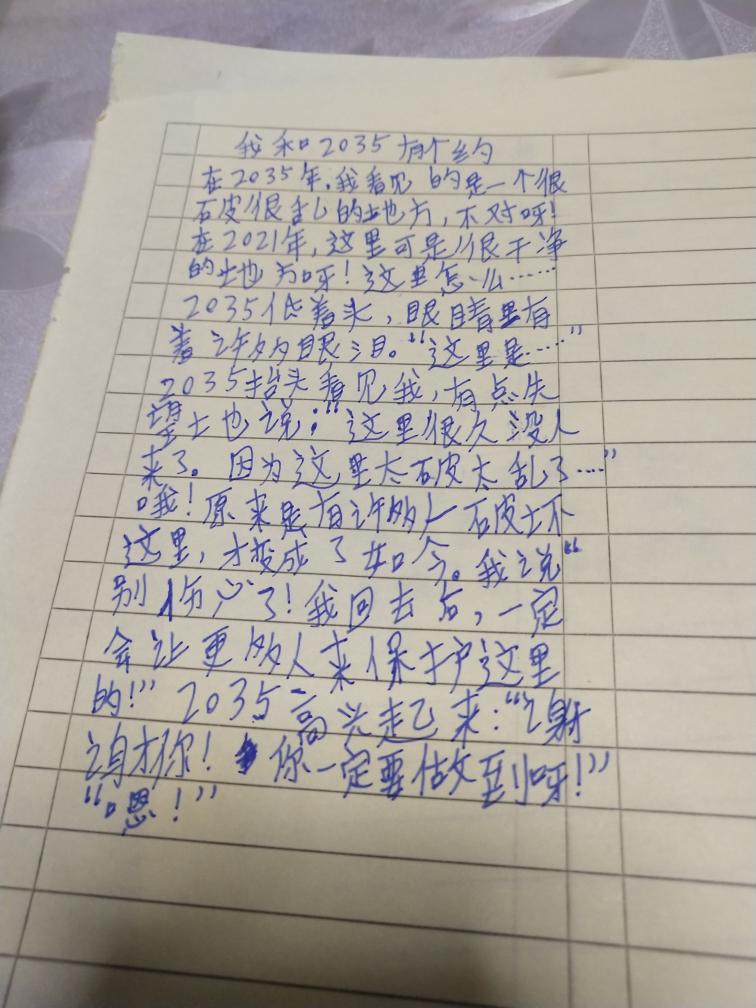 我和2035有个约
在2035年,我看见的是一个很
破很乱的地方,不对呀!
在2021年,这里可是很干净
的地方呀!这里怎么……
2035低着头,眼睛里有
着许多的眼泪。“这里是……”
2035抬头看见我,有点失
望地说:“这里很久没人
来了。因为这里太破太乱了……”
哦!原来是有许多人破坏
这里,才变成了如今。我说“
别伤心了!我回去后,一定
会让更多人来保护这里
的!”2035高兴起来:“谢
谢你!你一定要做到呀!”
“嗯!”